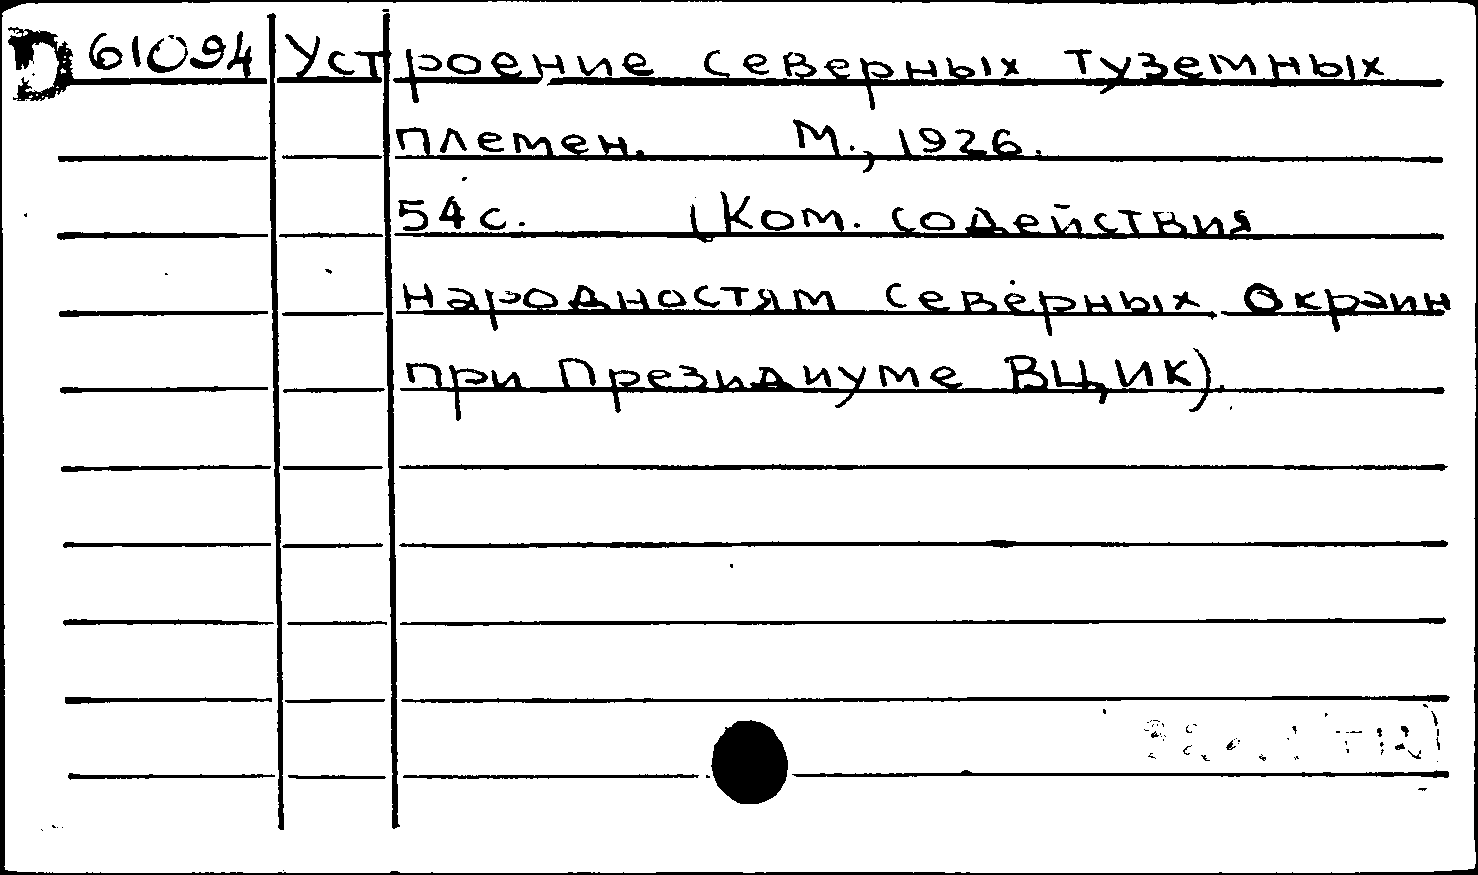 D 61094 Устроение северных туземных
племен. М., 1926.
54 с. (Ком. содействия
народностям северных окраин
при Президиуме ВЦИК).